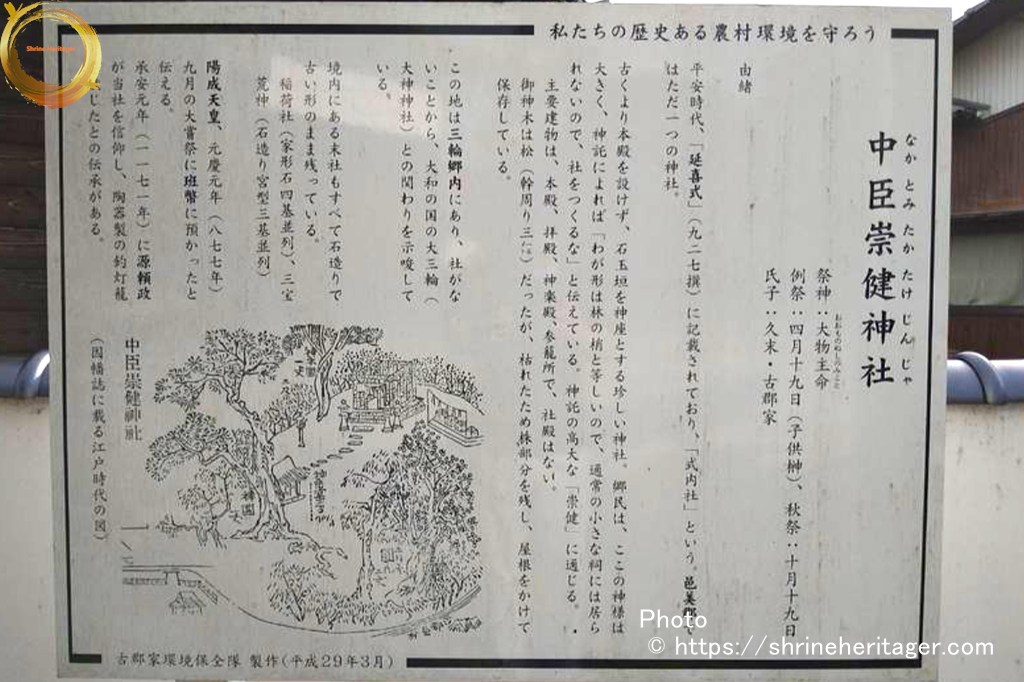 Shrine Heritager
私たちの歴史ある農村環境を守ろう
なかとみたかたけじんじゃ
中臣崇健神社
おおものぬしのみこと
祭神：大物主命
例祭：四月十九日（子供榊）、秋祭：十月十九日
氏子：久末・古郡家
由緒
平安時代、「延喜式」（九二七撰）に記載されており、「式内社」という。邑美郡で
はただ一つの神社。
古くより本殿を設けず、石玉垣を神座とする珍しい神社。郷民は、ここの神様は
大きく、神託によれば「わが形は林の梢と等しいので、通常の小さな祠には居ら
れないので、社をつくるな」と伝えている。神託の高大な「崇健」に通じる。
主要建物は、本殿、拝殿、神楽殿、参籠所で、社殿はない。
御神木は松（幹周り三㍍）だったが、枯れたため株部分を残し、屋根をかけて
保存している。
この地は三輪郷内にあり、社がな
いことから、大和の国の大三輪（
大神神社）との関わりを示唆して
いる。
境内にある末社もすべて石造りで
古い形のまま残っている。
稲荷社（家形石四基並列）、三宝
荒神（石造り宮型三基並列）
陽成天皇、元慶元年（八七七年）
九月の大嘗祭に班幣に預かったと
伝える。
承安元年（一一七一年）に源頼政
が当社を信仰し、陶器製の釣灯籠
じたとの伝承がある。
中臣崇健神社
（因幡誌に載る江戸時代の図）
古郡家環境保全隊 製作（平成29年3月）
Photo
© https://shrineheritager.com